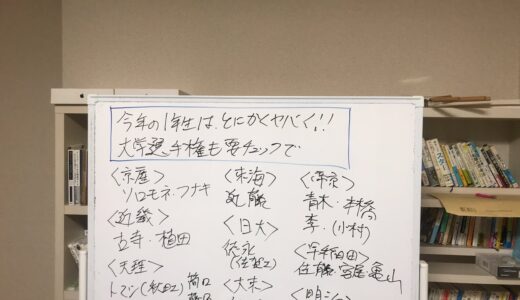 今年の1年生は、とにかくヤバく!!
大学選手権も要チェックで
<京産>
ソロモネ・フナキ
<近畿>
古寺・植田
<天理>
<東海>
近藤
<日大>
<大東>
<帝京>
青木・本橋
李・(小村)
<早稲田>
佐藤 宮尾 亀山
<明治>